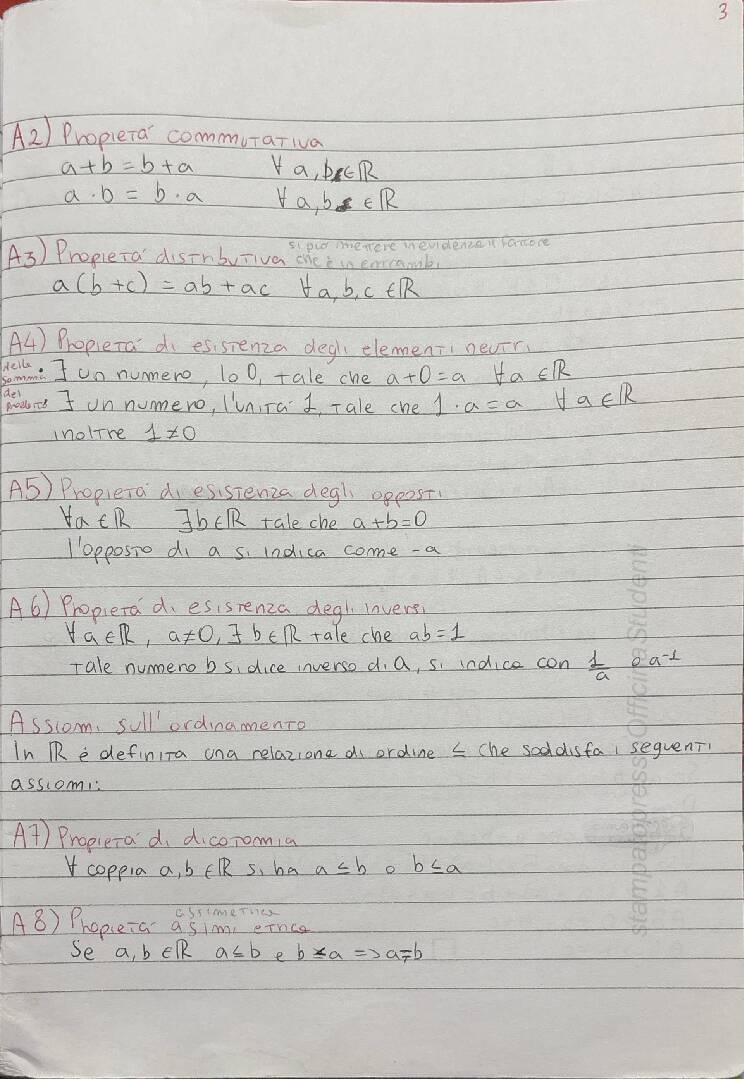 3
A2) Propietá commutativa
a+b=b+a ∀ a,b∈ℝ
a·b = b·a ∀ a,b ∈ℝ
si può mettere in evidenza il fattore
A3) Propietá distributiva che è in entrambi
a(b+c) = ab+ac ∀a,b,c ∈ℝ
A4) Propietá di esistenza degli elementi neutri
della somma • ∃ un numero, lo 0, tale che a+0=a ∀a ∈ℝ
del prodotto ∃ un numero, l'unità 1, tale che 1·a=a ∀a∈ℝ
inoltre 1≠0
A5) Propietá di esistenza degli opposti
∀a∈ℝ ∃b∈ℝ tale che a+b=0
l'opposto di a si indica come -a
A6) Propietá di esistenza degli inversi
∀a∈ℝ, a≠0, ∃ b∈ℝ tale che ab=1
tale numero b si dice inverso di a, si indica con 1/a o a⁻¹
Assiomi sull'ordinamento
In ℝ é definita una relazione di ordine ≤ che soddisfa i seguenti
assiomi:
A7) Propietá di dicotomia
∀ coppia a,b∈ℝ si ha a≤b o b≤a
assimetrica
A8) Propietá asimmetrica
Se a,b∈ℝ a≤b e b≤a => a=b
stampatopressoOfficinaStudenti